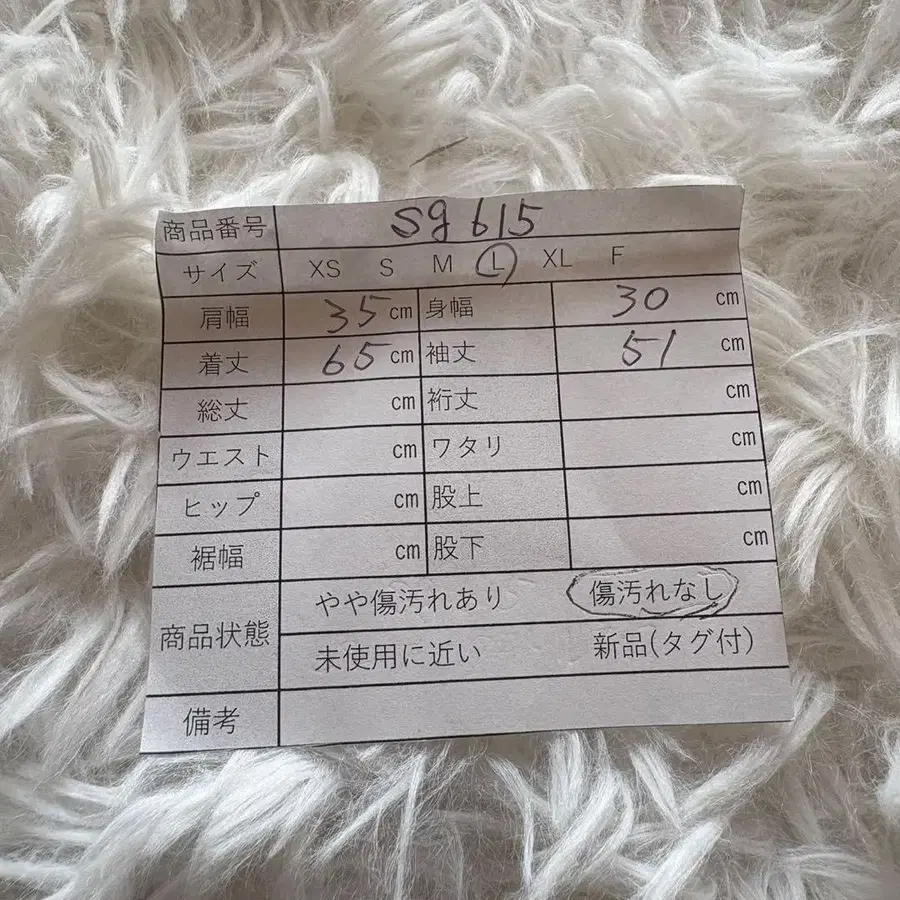 商品番号 sg615
サイズ XS S M L XL F
肩幅 35 cm 身幅 30 cm
着丈 65 cm 袖丈 51 cm
総丈 cm 裄丈 cm
ウエスト cm ワタリ cm
ヒップ cm 股上 cm
裾幅 cm 股下 cm
商品状態 やや傷汚れあり 傷汚れなし
未使用に近い 新品(タグ付)
備考